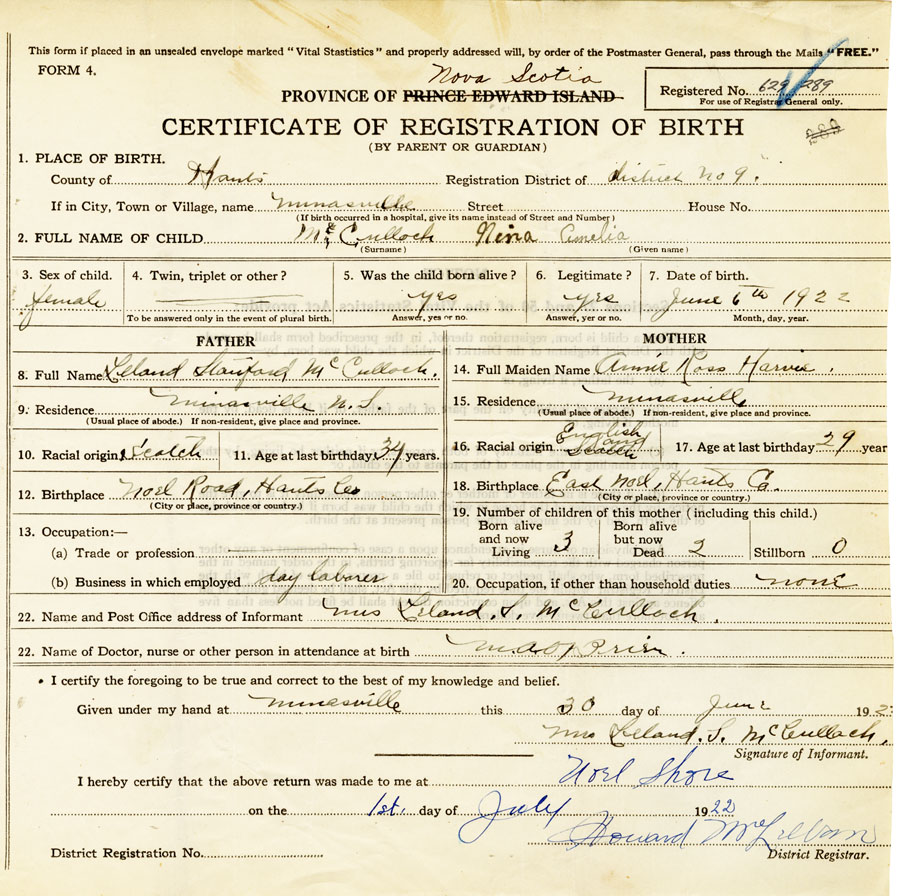 This form if placed in an unsealed envelope marked "Vital Stastistics" and properly addressed will, by order of the Postmaster General, pass through the Mails "FREE."
FORM 4.
Nova Scotia
PROVINCE OF PRINCE EDWARD ISLAND
Registered No. 629 289
For use of Registrar General only.
CERTIFICATE OF REGISTRATION OF BIRTH
(BY PARENT OR GUARDIAN)
1. PLACE OF BIRTH.
County of Hants Registration District of district No 9.
If in City, Town or Village, name Minasville Street House No.
(If birth occurred in a hospital, give its name instead of Street and Number)
2. FULL NAME OF CHILD McCulloch Nina Amelia
(Surname) (Given name)
3. Sex of child. 4. Twin, triplet or other? 5. Was the child born alive? 6. Legitimate? 7. Date of birth.
female yes yes June 6th 1922
To be answered only in the event of plural birth. Answer, yes or no. Answer, yer or no. Month, day, year.
FATHER MOTHER
8. Full Name Leland Stanford McCulloch. 14. Full Maiden Name Annie Ross Harvie.
9. Residence Minasville N.S. 15. Residence Minasville
(Usual place of abode.) If non-resident, give place and province. (Usual place of abode.) If non-resident, give place and province.
10. Racial origin Scotch 11. Age at last birthday 34 years. 16. Racial origin English and Scotch 17. Age at last birthday 29 year
12. Birthplace Noel Road, Hants Co 18. Birthplace East Noel, Hants Co.
(City or place, province or country.) (City or place, province or country.)
13. Occupation:— 19. Number of children of this mother (including this child.)
(a) Trade or profession Born alive and now Living 3 Born alive but now Dead 2 Stillborn 0
(b) Business in which employed day laborer 20. Occupation, if other than household duties none
22. Name and Post Office address of Informant Mrs Leland. S. McCulloch.
22. Name of Doctor, nurse or other person in attendance at birth
I certify the foregoing to be true and correct to the best of my knowledge and belief.
Given under my hand at Minasville this 30 day of June 192
Mrs Leland. S. McCullach.
Signature of Informant.
I hereby certify that the above return was made to me at Noel Shore
on the 1st. day of July 1922
Howard
District Registrar.
District Registration No.